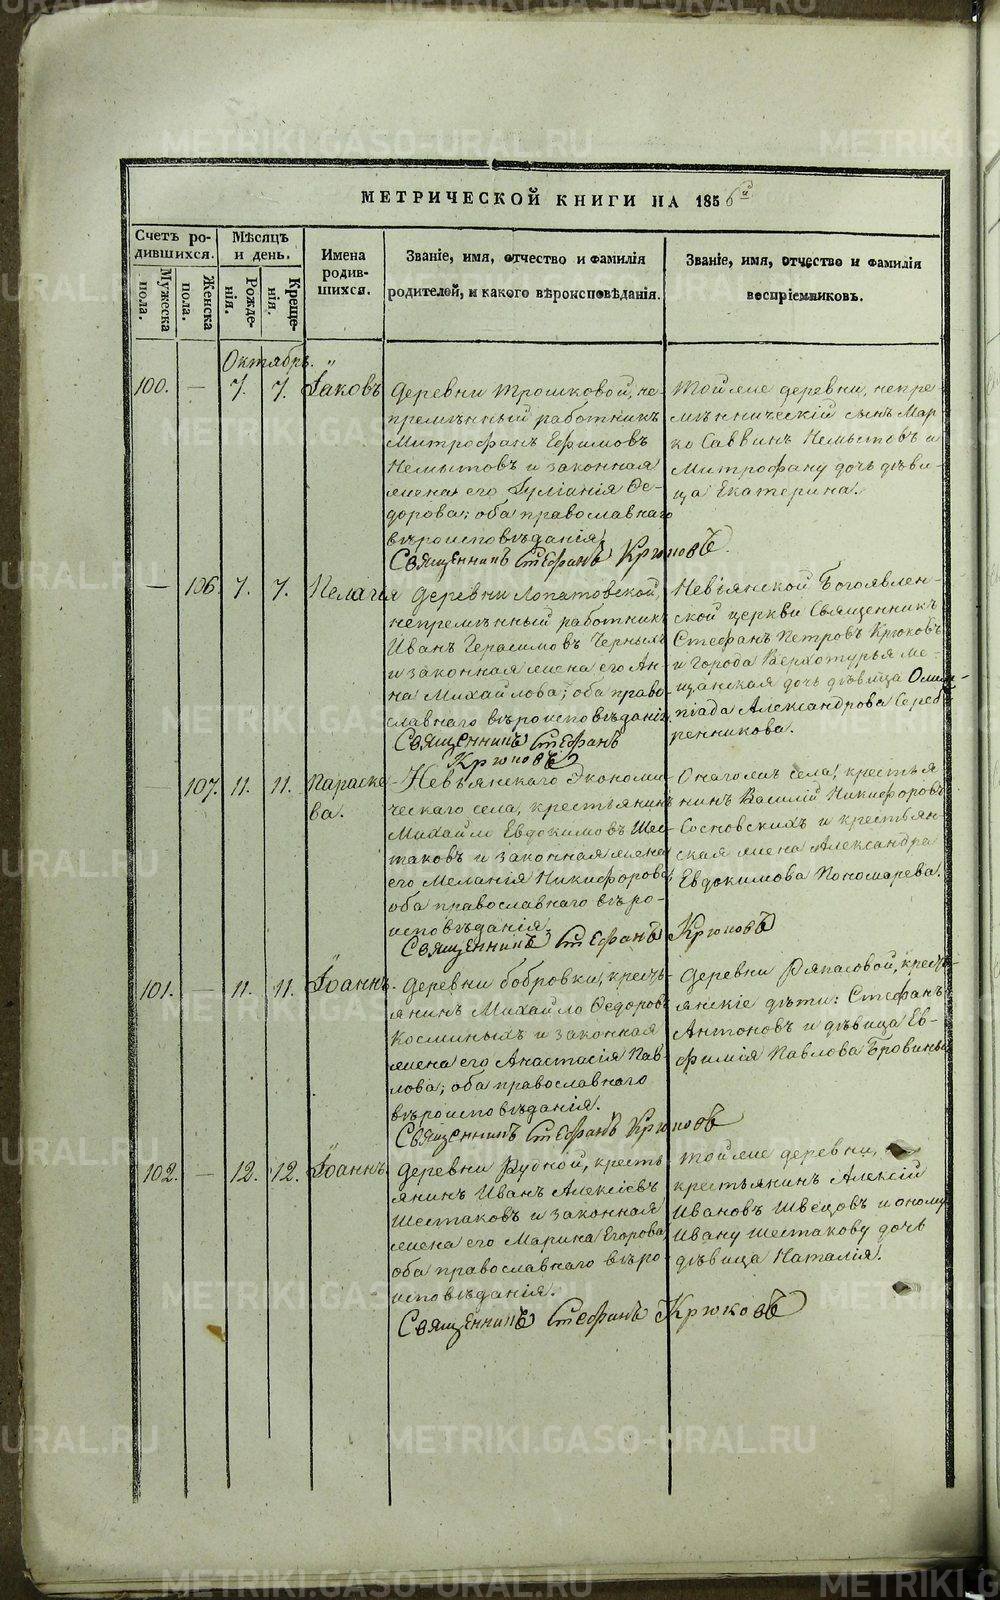 МЕТРИЧЕСКОЙ КНИГИ НА 1856й
Счетъ ро-
дившихся.
Мужеска
пола.
Женска
пола.
Мѣсяцъ
и день.
Рожде-
нія.
Креще-
нія.
Имена
родив-
шихся.
Званіе, имя, отчество и фамилія
родителей, и какого вѣроисповѣданія.
Званіе, имя, отчество и фамилія
воспріемниковъ.
Октябрь.
100. — 7. 7. Іаковъ
Деревни Трошковой, не-
премѣнный работникъ
Митрофанъ Ефимовъ
Немытовъ и законная
жена его Іуліанія Ѳе-
дорова; оба православнаго
вѣроисповѣданія.
Тойже деревни, непре-
мѣнническій сынъ Мар-
ко Саввинъ Немытовъ и
Митрофану дочь дѣви-
ца Екатерина.
Священникъ Стефанъ Крюковъ.
— 106. 7. 7. Пелагія
Деревни Лопатовской,
непремѣнный работникъ
Иванъ Герасимовъ Черныхъ
и законная жена его Ан-
на Михайлова; оба право-
славнаго вѣроисповѣданія.
Невьянской Богоявлен-
ской церкви Священникъ
Стефанъ Петровъ Крюковъ
и города Верхотурья ме-
щанская дочь дѣвица Олим-
піада Александрова Сереб-
ренникова.
Священникъ Стефанъ
Крюковъ
107. 11. 11. Параске-
ва.
Невьянскаго Экономи-
ческаго села, крестьянинъ
Михайло Евдокимовъ Шес-
таковъ и законная жена
его Меланія Никифорова;
оба православнаго вѣро-
исповѣданія.
Онагожъ села, крестья-
нинъ Василій Никифоровъ
Сосновскихъ и крестьян-
ская жена Александра
Евдокимова Пономарева.
Священникъ Стефанъ Крюковъ
101. — 11. 11. Іоаннъ.
Деревни Бобровки, кресть-
янинъ Михайло Ѳедоровъ
Косминыхъ и законная
жена его Анастасія Пав-
лова; оба православнаго
вѣроисповѣданія.
Деревни Ряпасовой, кресть-
янскіе дѣти: Стефанъ
Антоновъ и дѣвица Ев-
фимія Павлова Бровины.
Священникъ Стефанъ Крюковъ
102. — 12. 12. Іоаннъ.
Деревни Рудной, кресть-
янинъ Иванъ Алексіевъ
Шестаковъ и законная
жена его Марина Егорова,
оба православнаго вѣро-
исповѣданія.
Тойже деревни,
крестьянинъ Алексій
Ивановъ Швецовъ и оному
Ивану Шестакову дочь
дѣвица Наталія.
Священникъ Стефанъ Крюковъ
METRIKI.GASO-URAL.RU